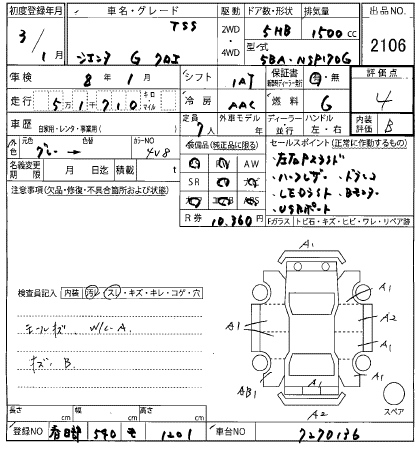 初度登録年月 車名・グレード 駆動 ドア数・形状 排気量 出品NO
3/1月 TSS 2WD・4WD 5HB 1500cc 2106
シエンタ G クエロ 型式 5BA-NSP170G
車検 8年1月 シフト 1AT 保証書 有・無 評価点 4
走行 51710 キロ・マイル 冷房 AAC 燃料 G
車歴 自家用・レンタ・事業用( ) 定員 7人 外車モデル 年 ディーラー 並行 ハンドル 左・右 内装評価 B
外色 元色 グレー → 色替 カラーNO 4V8 装備品(純正品に限る) セールスポイント(正常に作動するもの)
名義変更期限 月 日迄 積載 t AW
SR ・ハーフレザー
注意事項(欠品・修復・不具合箇所および状態) ・LEDライト
ABS ・USBポート
R券 10,360円 Fガラス トビ石・キズ・ヒビ・ワレ・リペア跡
A1
検査員記入 内装 汚レ・スレ・キズ・キレ・コゲ・穴 A1
W/C-A A1 A2
キズ B A1
AB1 A1 A1
A2 スペア
長さ cm 幅 cm 高さ cm
登録NO 春日部 540 モ 1201 車台NO 7270136